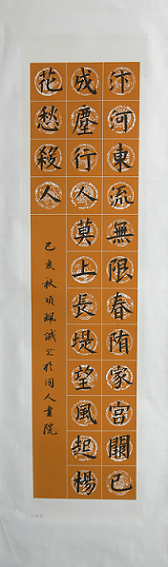 汴河東流無限春隋家宮闕已
成塵行人莫上長堤望風起楊
花愁殺人
己亥秋項珮誠书於國人畫院